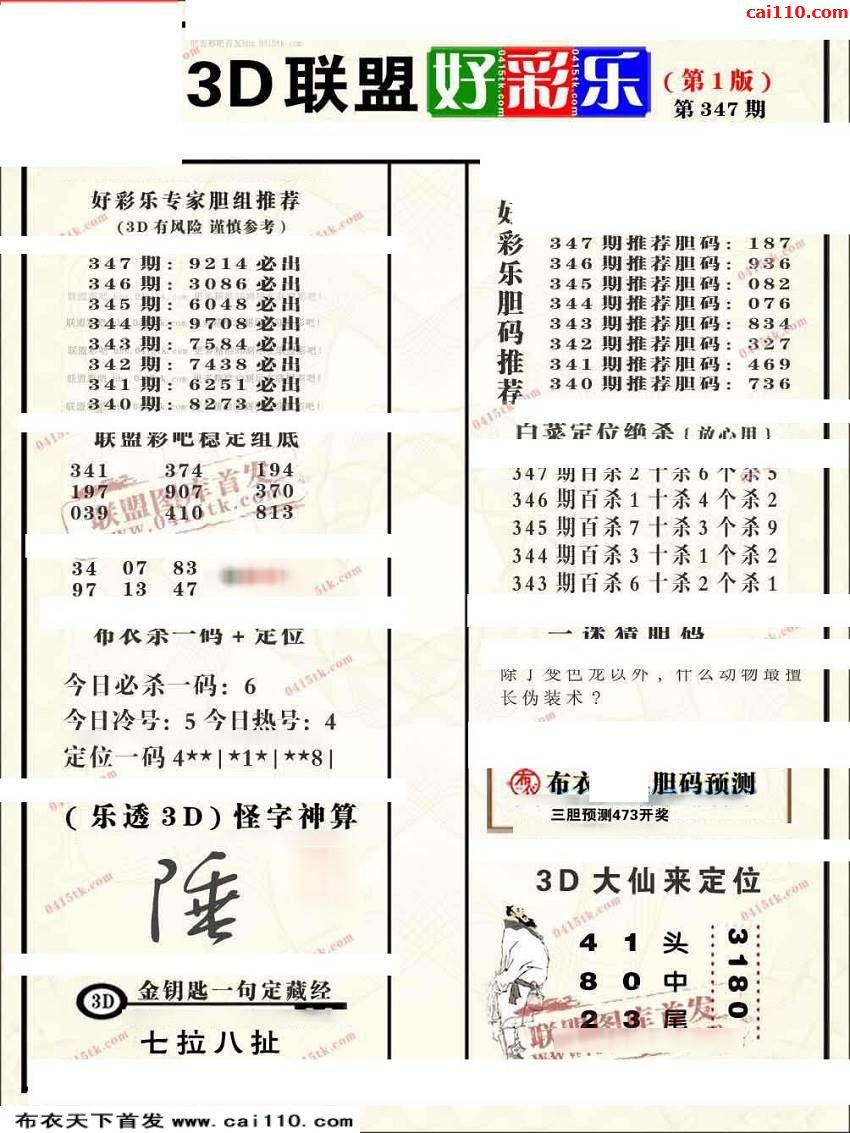 cai110.com
3D联盟好彩乐
(第1版)
第347期
好彩乐专家胆组推荐
(3D有风险 谨慎参考)
347期: 9214必出
346期: 3086必出
345期: 6048必出
344期: 9708必出
343期: 7584必出
342期: 7438必出
341期: 6251必出
340期: 8273必出
联盟彩吧稳定组底
341 374 194
197 907 370
039 410 813
34 07 83
97 13 47
布衣杀一码+定位
今日必杀一码: 6
今日冷号: 5 今日热号: 4
定位一码 4**|*1*|**8|
(乐透3D)怪字神算
3D 金钥匙一句定藏经
七拉八扯
好彩乐胆码推荐
347期推荐胆码: 187
346期推荐胆码: 936
345期推荐胆码: 082
344期推荐胆码: 076
343期推荐胆码: 834
342期推荐胆码: 327
341期推荐胆码: 469
340期推荐胆码: 736
白菜定位绝杀(放心用)
347期百杀2十杀6个杀5
346期百杀1十杀4个杀2
345期百杀7十杀3个杀9
344期百杀3十杀1个杀2
343期百杀6十杀2个杀1
一迷猜胆码
除了变色龙以外,什么动物最擅
长伪装术?
布衣 胆码预测
三胆预测473开奖
3D大仙来定位
4 1 头
8 0 中
2 3 尾
3180
联盟图库首发
www.0415tk.com
布衣天下首发 www.cai110.com